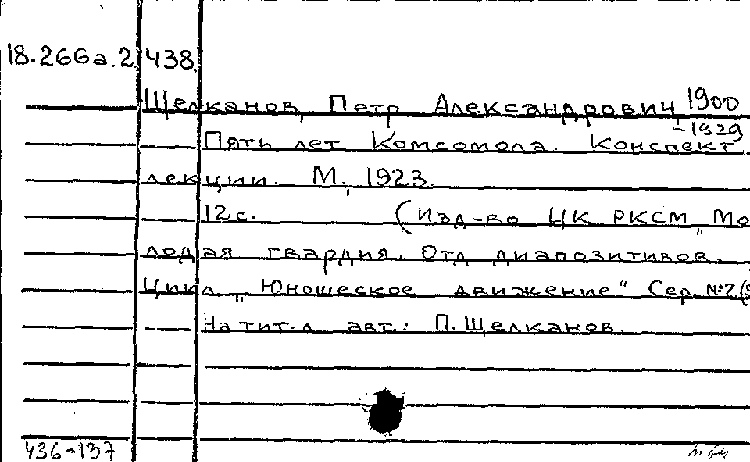 18.266а.2 438
Щелканов, Петр Александрович, 1900
-1929
Пять лет Комсомола. Конспект
лекции. М., 1923.
12с. (Изд-во ЦК РКСМ „Мо
лодая гвардия. Отд. диапозитивов.
Цикл „Юношеское движение" Сер. №2(
На тит.л. авт.: П.Щелканов.
436-137